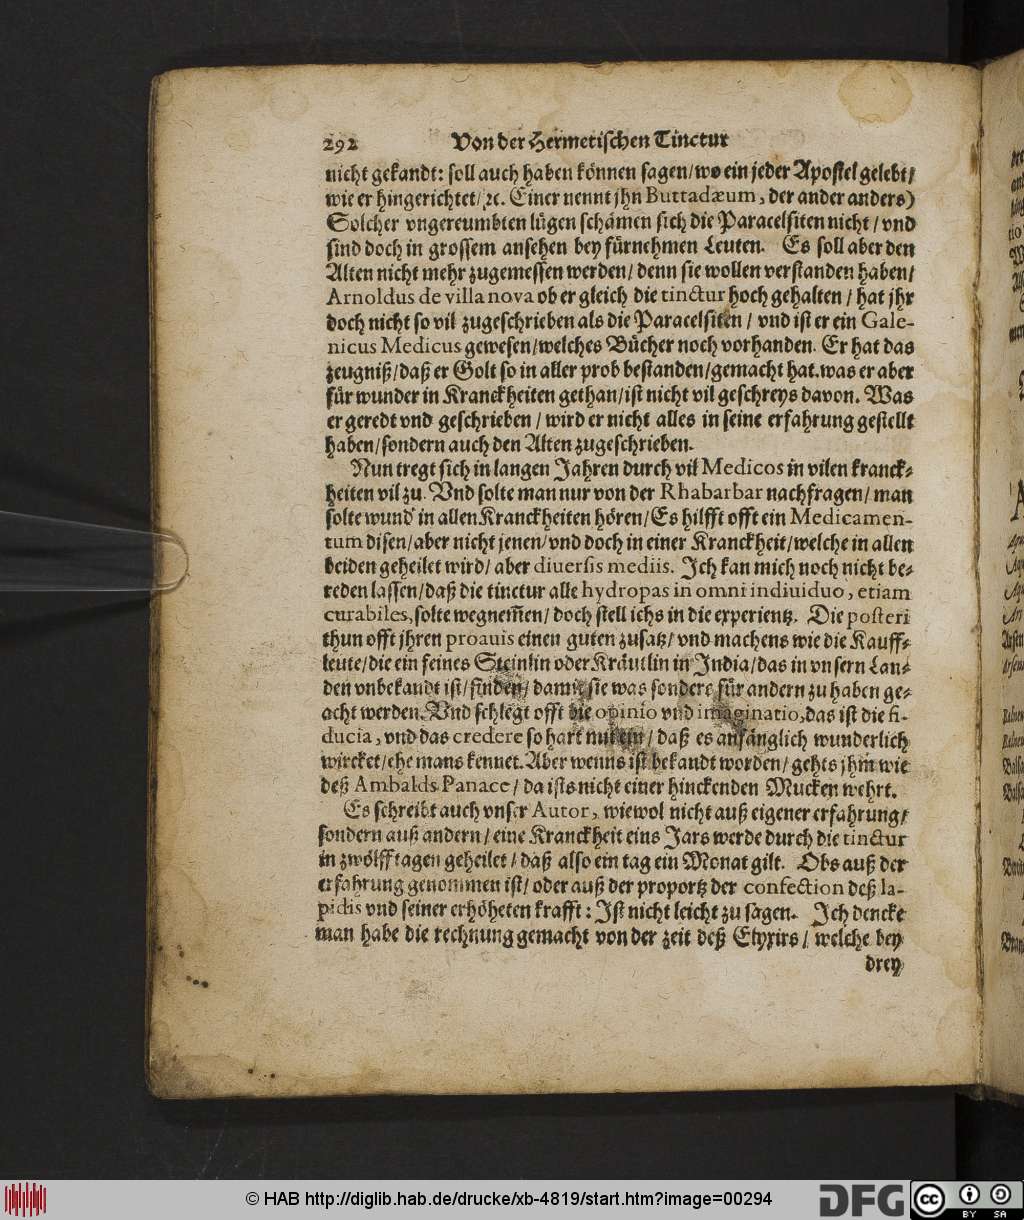 292 Von der Hermetischen Tinctur
nicht gekandt: soll auch haben können sagen/wo ein jeder Apostel gelebt/
wie er hingerichtet/ꝛc. Einer nennt jhn Buttadæum, der ander anders)
Solcher vngereumbten lügen schämen sich die Paracelsiten nicht / vnd
sind doch in grossem ansehen bey fürnehmen Leuten. Es soll aber den
Alten nicht mehr zugemessen werden/ denn sie wollen verstanden haben/
Arnoldus de villa nova ob er gleich die tinctur hoch gehalten / hat jhr
doch nicht so vil zugeschrieben als die Paracelsiten / vnd ist er ein Gale-
nicus Medicus gewesen/welches Bücher noch vorhanden. Er hat das
zeugniß/daß er Golt so in aller prob bestanden/gemacht hat.was er aber
für wunder in Kranckheiten gethan/ist nicht vil geschreys davon. Was
er geredt vnd geschrieben / wird er nicht alles in seine erfahrung gestellt
haben/sondern auch den Alten zugeschrieben.
Nun tregt sich in langen Jahren durch vil Medicos in vilen kranck-
heiten vil zu. Vnd solte man nur von der Rhabarbar nachfragen/ man
solte wund' in allen Kranckheiten hören/Es hilfft offt ein Medicamen-
tum disen/aber nicht jenen/vnd doch in einer Kranckheit/welche in allen
beiden geheilet wird/ aber diuersis mediis. Ich kan mich noch nicht be-
reden lassen/daß die tinctur alle hydropas in omni indiuiduo, etiam
curabiles,solte wegnem̃en/ doch stell ichs in die experientz. Die posteri
thun offt jhren proauis einen guten zusatz/ vnd machens wie die Kauff-
leute/die ein feines Steinlin oder Kräutlin in India/das in vnsern Lan-
den vnbekandt ist/finden/ damit sie was sonders für andern zu haben ge-
acht werden. Vnd schlegt offt die opinio vnd imaginatio,das ist die fi-
ducia, vnd das credere so hart mit ein/ daß es anfänglich wunderlich
wircket/ehe mans kennet. Aber wenns ist bekandt worden/ gehts jhm wie
deß Ambalds Panace/ da ists nicht einer hinckenden Mucken wehrt.
Es schreibt auch vnser Autor, wiewol nicht auß eigener erfahrung/
sondern auß andern/ eine Kranckheit eins Jars werde durch die tinctur
in zwölff tagen geheilet / daß also ein tag ein Monat gilt. Obs auß der
erfahrung genommen ist/ oder auß der proportz der confection deß la-
pidis vnd seiner erhöheten krafft: Ist nicht leicht zu sagen. Ich dencke
man habe die rechnung gemacht von der zeit deß Elyxirs / welche bey
drey
© HAB http://diglib.hab.de/drucke/xb-4819/start.htm?image=00294
DFG
cc
BY SA